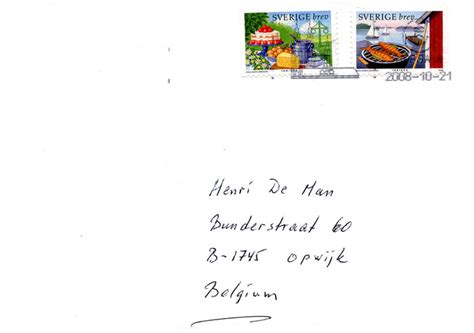 SVERIGE brev
SVERIGE brev
2008-10-21
Henri De Man
Bunderstraat 60
B-1745 opwijk
Belgium